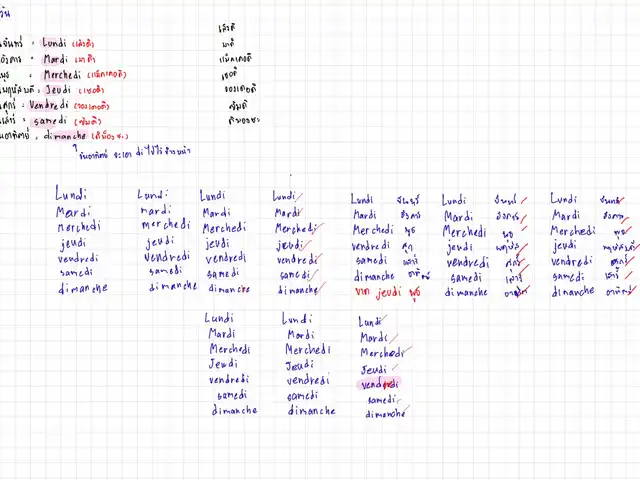 วัน
จันทร์ = Lundi (เล้งดิ)
อังคาร = Mardi (มาดิ)
พุธ = Merchedi (แม็คเคอดิ)
พฤหัสบดี = Jeudi (เชอดิ)
ศุกร์ = Vendredi (วองเดอดิ)
เสาร์ = samedi (ซัมดิ)
อาทิตย์ = dimanche (ดิม็องช.)
เล้งดิ
มาดิ
แม็คเคอดิ
เชอดิ
วองเดอดิ
ซัมดิ
ดิม็องช
วันอาทิตย์ จะเอา di ไปไว้ข้างหน้า
Lundi Lundi Lundi Lundi Lundi จันทร์ Lundi จันทร์ Lundi จันทร์
Mardi mardi Mardi Mardi Mardi อังคาร Mardi อังคาร Mardi อังคาร
Merchedi merchedi Merchedi Merchedi Merchedi พุธ Merchedi พุธ Merchedi พุธ
jeudi jeudi jeudi jeudi vendredi ศุก jeudi jeudi
vendredi vendredi vendredi vendredi samedi เสาร์ vendredi ศุกร์ vendredi ศุกร์
samedi samedi samedi samedi dimanche samedi เสาร์ samedi เสาร์
dimanche dimanche dimanche dimanche ขาด jeudi dimanche dimanche
Lundi Lundi Lundi
Mardi Mardi Mardi
Merchedi Merchedi Merchedi
Jeudi Jeudi Jeudi
vendredi vendredi vendredi
samedi samedi samedi
dimanche dimanche dimanche